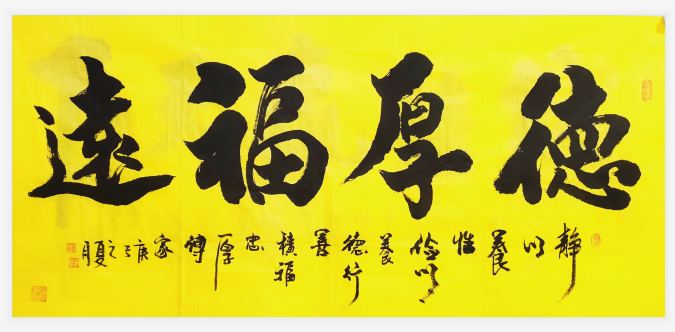 德厚福遠
静以養性儉以養德行善積福忠厚傳家庚子之夏月